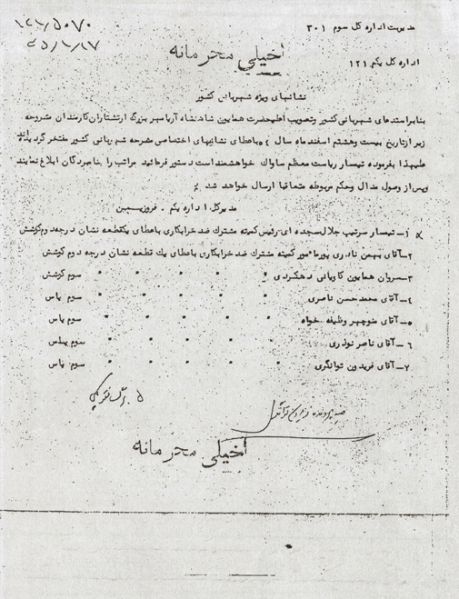 ۱۲۱/۵۰۷۰
۳۵/۱/۱۷
مدیریت اداره کل سوم ۳۰۱
اداره کل یکم ۱۲۱
خیلی محرمانه
نشانهای ویژه شهربانی کشور
بنابراستدعای شهربانی کشور وتصویب اعلیحضرت همایون شاهنشاه آریامهر بزرگ ارتشتاران کارمندان مشروحه
زیر ازتاریخ بیست وهشتم اسفندماه سال باعطای نشانهای اختصاصی مشرحه شهربانی کشور مفتخر گردیده اند
علیهذا بفرموده تیمسار ریاست معظم ساواک خواهشمند است دستور فرمائید مراتب را بنامبردگان ابلاغ نمایند
وپس از وصول مدال وحکم مربوطه متعاقبا ارسال خواهد شد
مدیرکل اداره یکم . فروزین
۱- تیمسار سرتیپ جلال سجده ای رئیس کمیته مشترک ضد خرابکاری باعطای یکقطعه نشان درجه دوم کوشش
۲- آقای بهمن نادری پور مامور کمیته مشترک ضد خرابکاری باعطای یک قطعه نشان درجه دوم کوشش
۳- سروان همایون کاویانی دهکردی " " " " " " سوم کوشش
۴- آقای محمدحسن ناصری " " " " " " سوم پاس
۵- آقای منوچهر وظیفه خواه " " " " " " سوم پاس
۶- آقای ناصر نوذری " " " " " " سوم پاس
۷- آقای فریدون توانگری " " " " " " سوم پاس
خیلی محرمانه